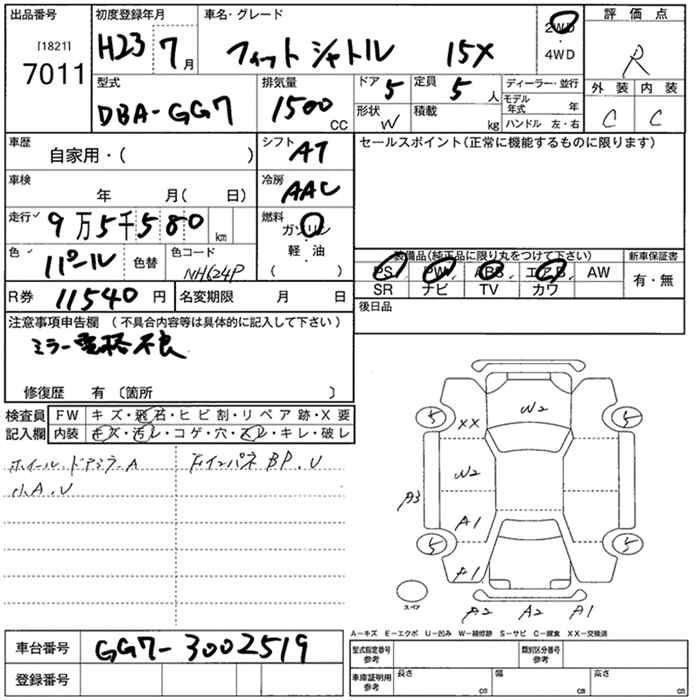 出品番号 初度登録年月 車名・グレード 2WD 評価点
[1821] H23 7月 フィット シャトル 15X ・4WD R
7011
型式 排気量 ドア 5 定員 5人 ディーラー・並行 外装 内装
DBA-GG7 1500cc 形状 W 積載 kg モデル年式 年 C C
ハンドル 左・右
車歴 自家用・( ) シフト AT セールスポイント(正常に機能するものに限ります)
車検 年 月( 日) 冷房 AAC
走行 9万5千580km 燃料 ガソリン
軽・油
( )
色 パール 色替 色コード NH624P
装備品(純正品に限り丸をつけて下さい) 新車保証書
PS PW ABS エアB AW 有・無
SR ナビ TV カワ
R券 11540円 名変期限 月 日 後日品
注意事項申告欄 (不具合内容等は具体的に記入して下さい)
ミラー電格不良
修復歴 有 〔箇所 〕
検査員 FW キズ・飛石・ヒビ割・リペア跡・X要
記入欄 内装 キズ・汚レ・コゲ・穴・スレ・キレ・破レ
ホイール、ドアミラーA
小A、U
W2
5 XX 5
W2
A3
A1
5 5
A1
スペア
A2 A2 A1
A－キズ E－エクボ U－凹み W－補修跡 S－サビ C－腐食 XX－交換済
車台番号 GG7-3002519
登録番号
型式指定番号 参考 類別区分番号 参考
車庫証明用 参考 長さ cm 幅 cm 高さ cm